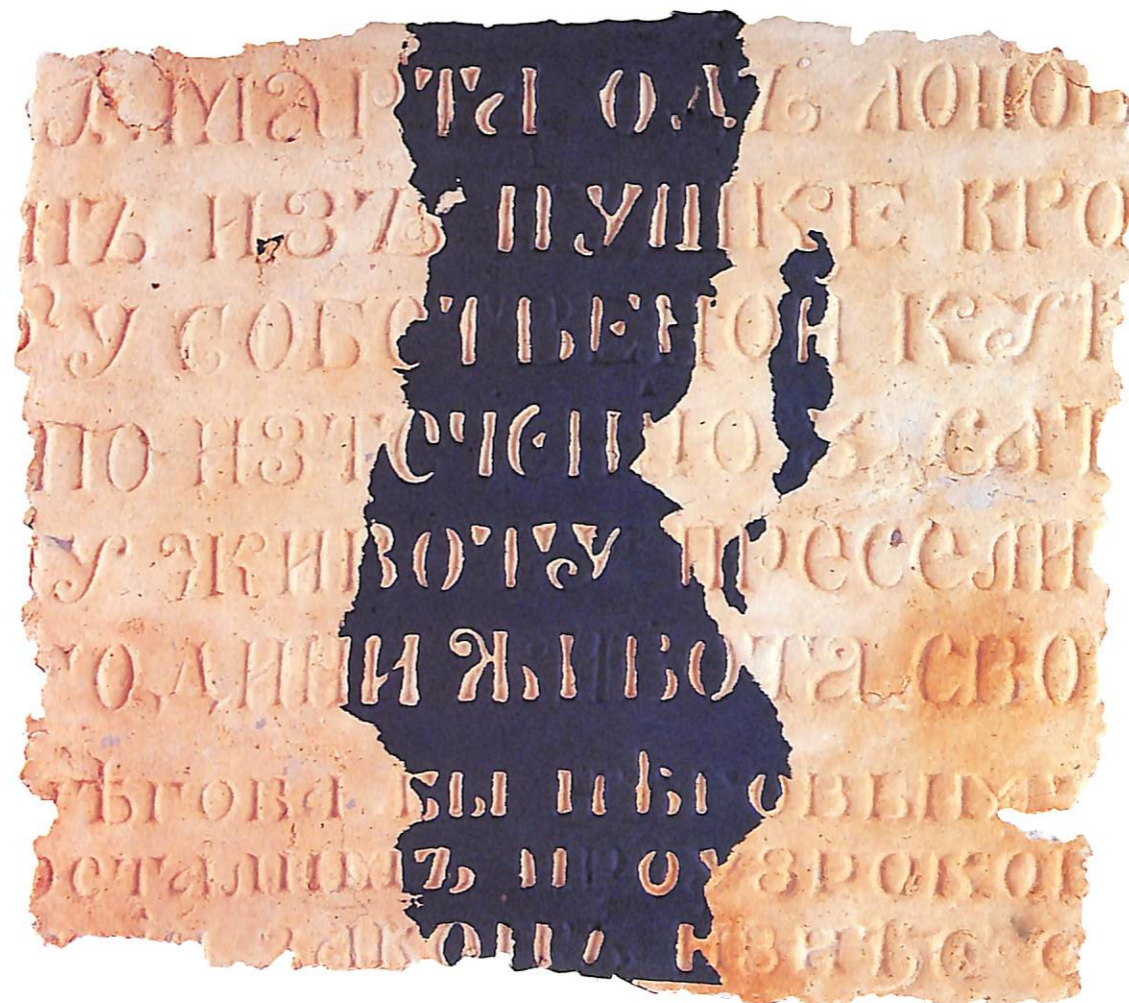 МАРТЪІ ОДЪ ЛОПОВ
НЪ ИЗЪ ПУШКЕ КРО
У СОБСТВЕНОЙ КУЋ
ПО ИЗТЕЧЕНІЮ САТ
У ЖИВОТУ ПРЕСЕЛИ
ГОДИНИ ЖИВОТА СВО
ѢГОВА БЫ НѢГОВЫМ
ОСТАЛИМЪ И УЗРОКОВ